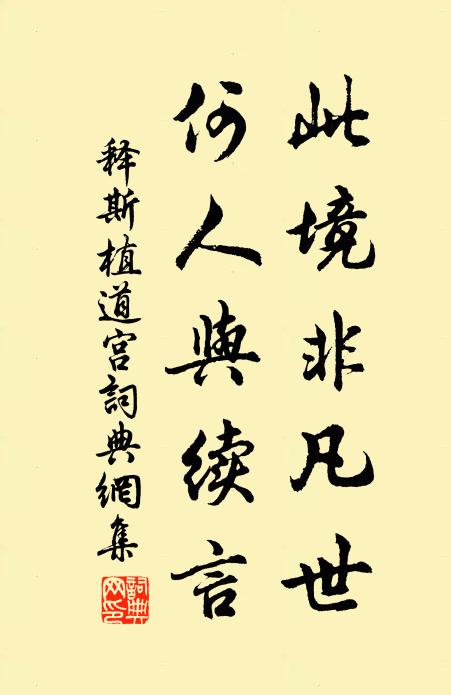 此境非凡世
何人與续言
释斯植道宫詞典網集
詞典网印